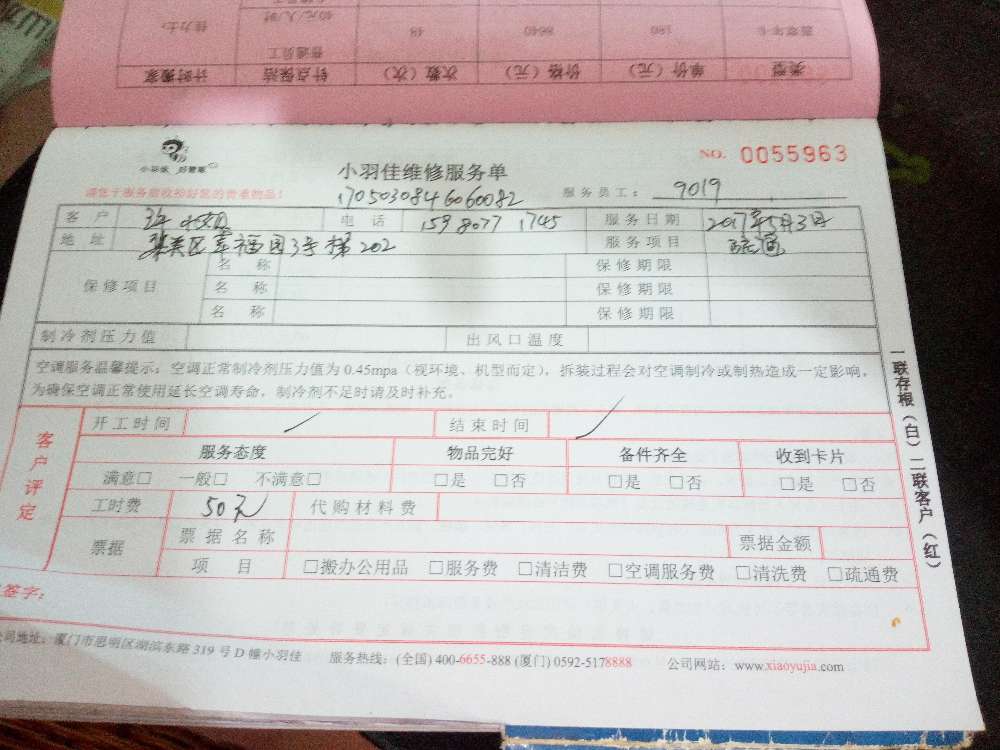 类型 单价（元） 价格（元） 次数（次） 钟点保洁 计时搬家
嘉家年卡 180 8640 48 普通员工 40元/人/时 佳力士
小羽佳 好管家
小羽佳维修服务单
NO. 0055963
请您于服务前收拾好您的贵重物品！
1705030846060082
服务员工： 9019
客户 电话 159 8077 1745 服务日期 2017年5月3日
地址 集美区幸福园3号梯202 服务项目 疏通
保修项目 名称 保修期限
名称 保修期限
名称 保修期限
制冷剂压力值 出风口温度
空调服务温馨提示：空调正常制冷剂压力值为 0.45mpa（视环境、机型而定），拆装过程会对空调制冷或制热造成一定影响，
为确保空调正常使用延长空调寿命，制冷剂不足时请及时补充。
客户评定
开工时间 结束时间
服务态度 物品完好 备件齐全 收到卡片
满意□ 一般□ 不满意□ □是 □否 □是 □否 □是 □否
工时费 50元 代购材料费
票据 票据名称 票据金额
项目 □搬办公用品 □服务费 □清洁费 □空调服务费 □清洗费 □疏通费
签字：
公司地址：厦门市思明区湖滨东路 319 号 D 幢小羽佳 服务热线：(全国) 400-6655-888 (厦门) 0592-5178888 公司网站：www.xiaoyujia.com
一联存根（白）二联客户（红）